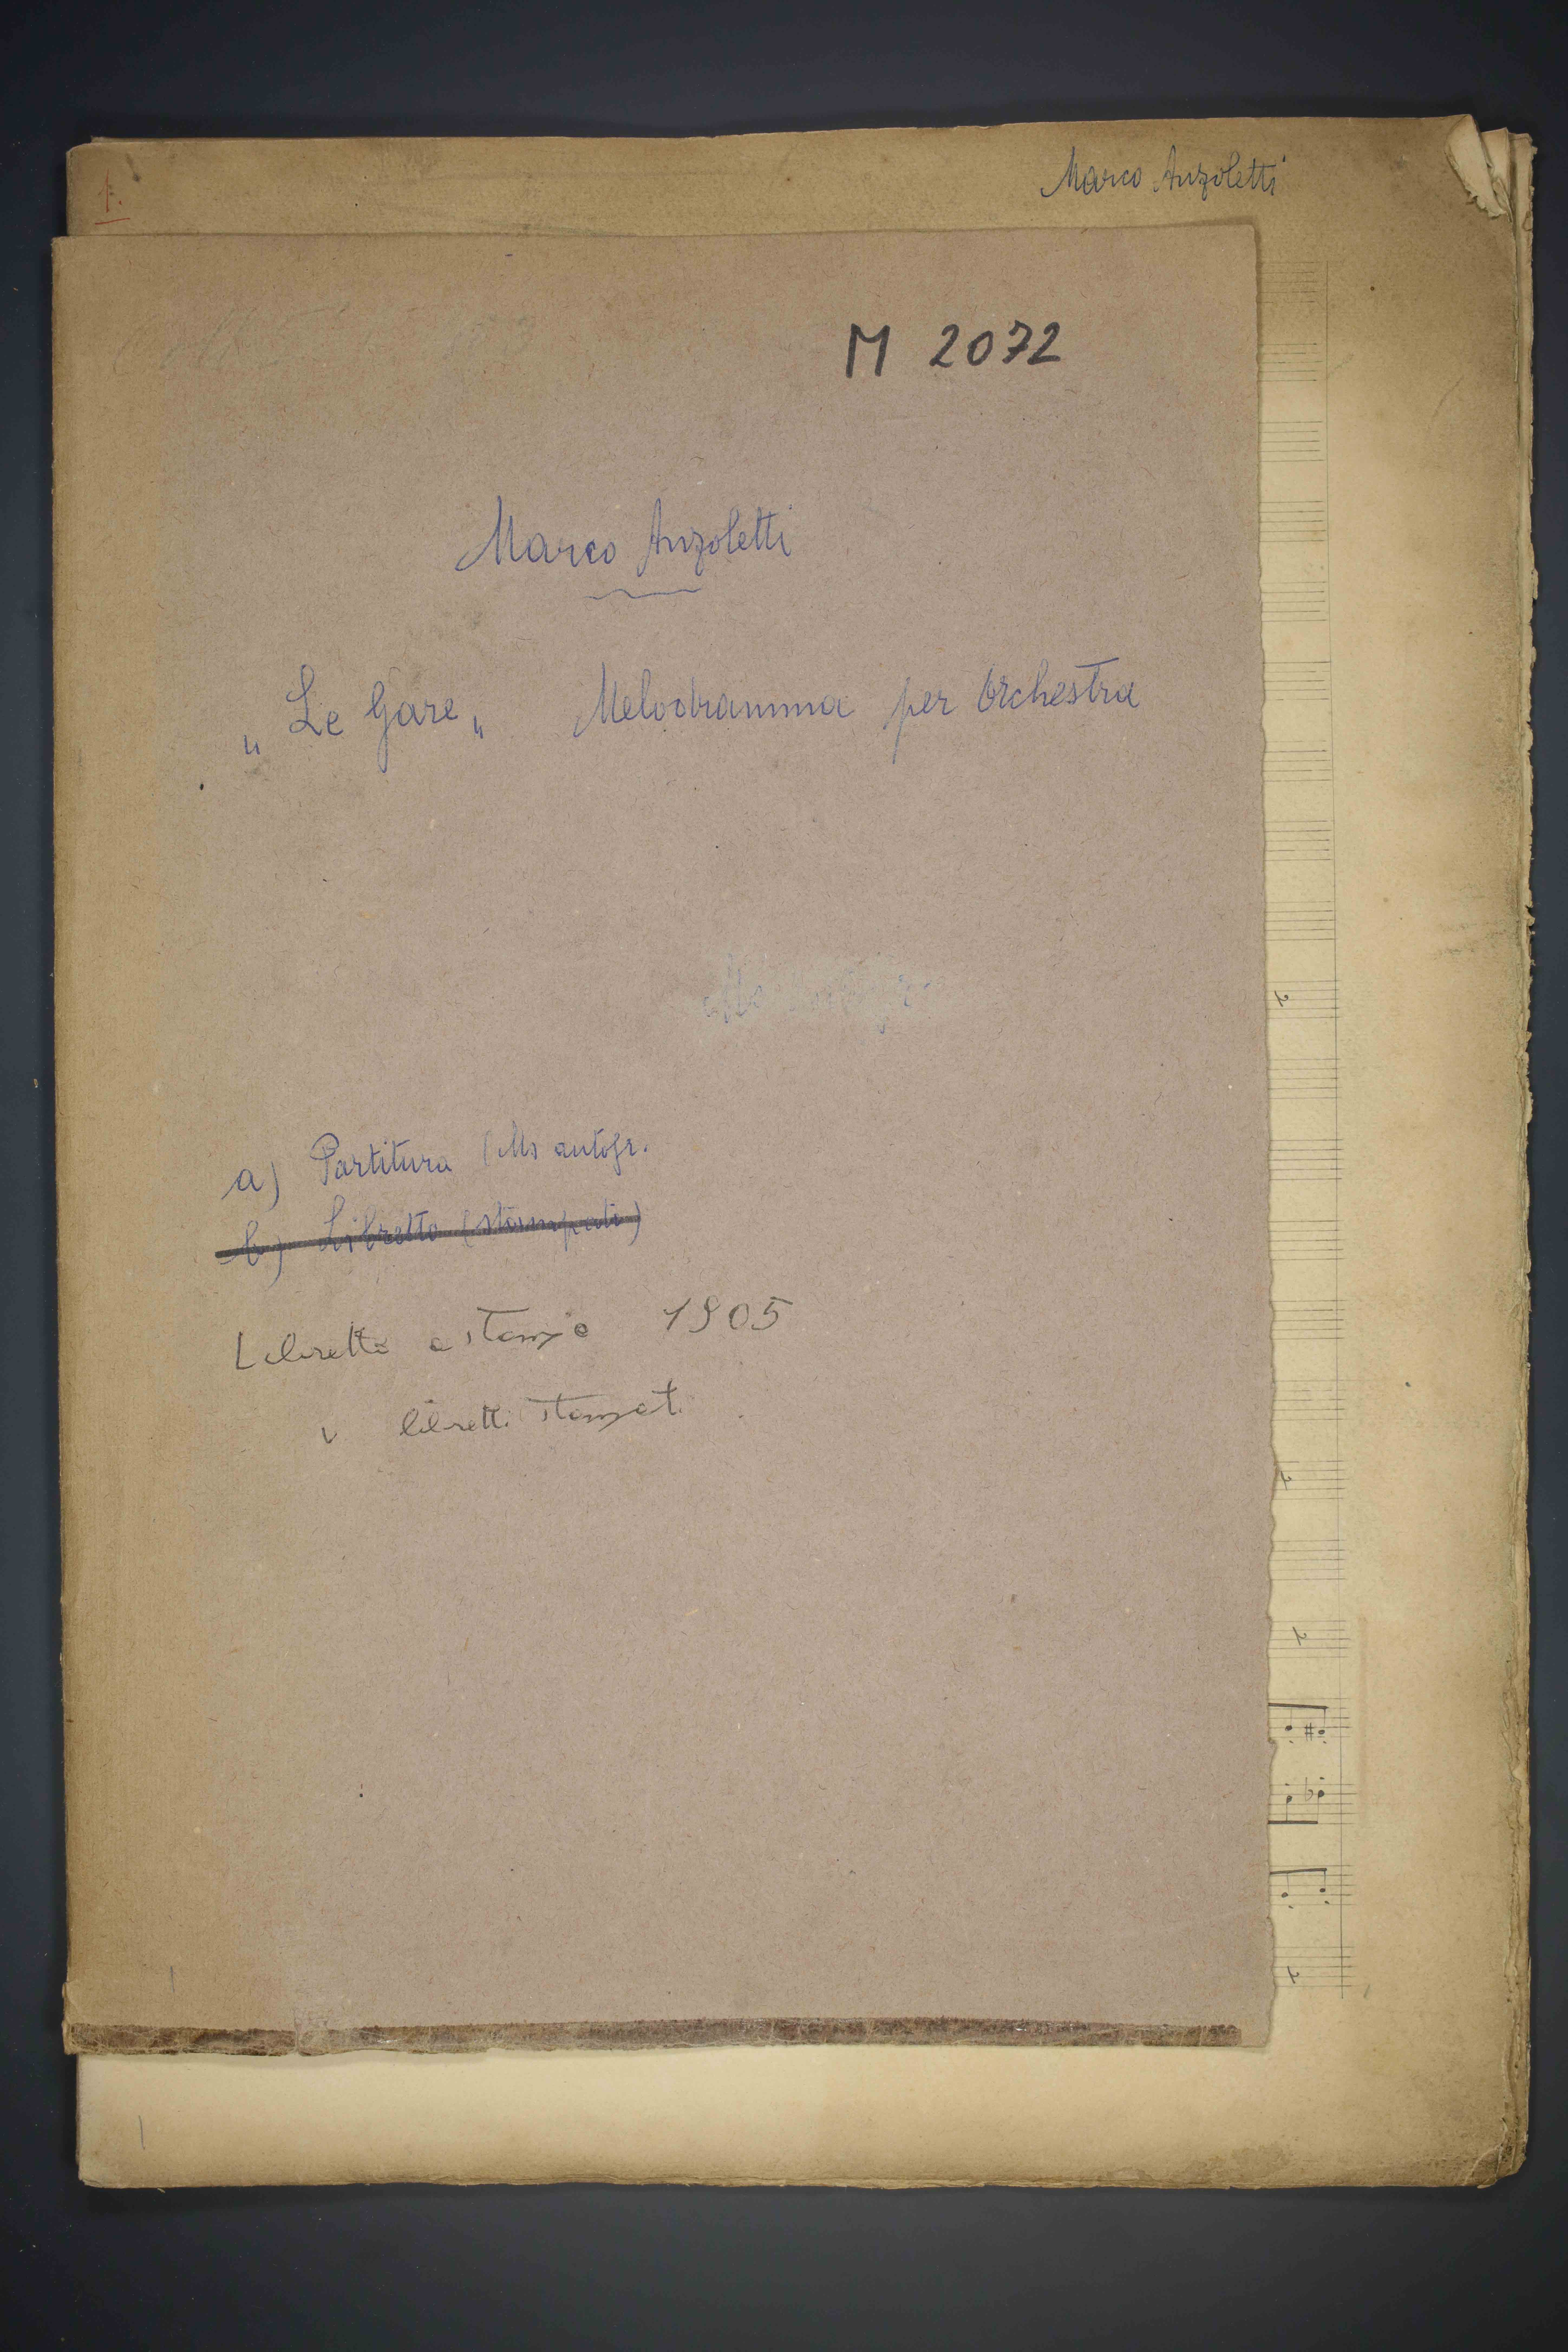 1.
Marco Anzoletti
M 2072
Marco Anzoletti
„Le Gare„ Melodramma per Orchestra
a) Partitura (Ms autogr.
b) Libretto (stampati)
Libretto a stampa 1905
libretti stampati